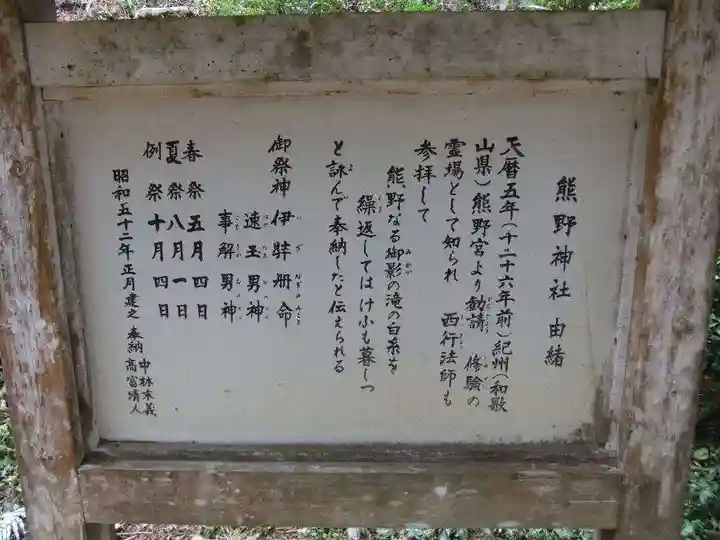 熊野神社 由緒
天暦五年(千二十六年前)紀州(和歌
山県)熊野宮より勧請 修験の
霊場として知られ 西行法師も
参拝して
熊野なる御影の滝の白糸を
繰返してはけふも暮しつ
と詠んで奉納したと伝えられる
御祭神 伊弉册命
速玉男神
事解男神
春祭 五月四日
夏祭 八月一日
例祭 十月四日
昭和五十二年 正月建之 奉納 中林末義
高富清人